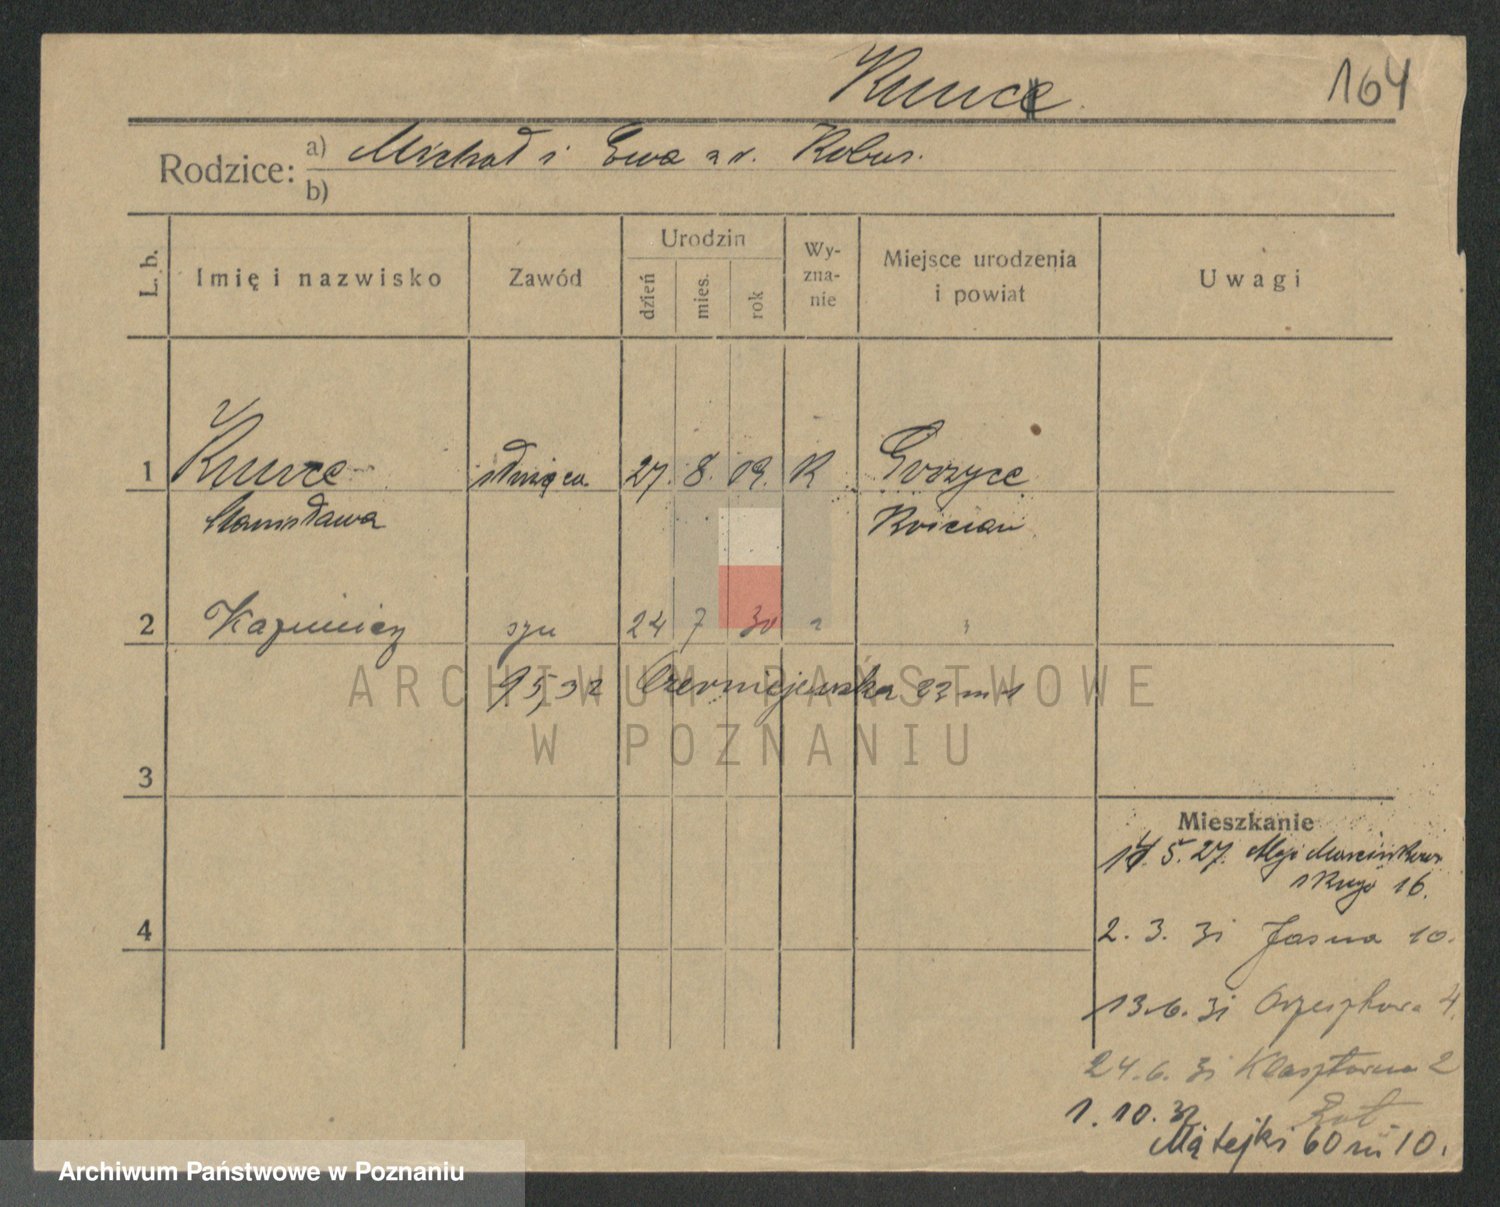 Kunce
164
Rodzice: a) Michał i Ewa z d. Kobus.
b)
L. b.
Imię i nazwisko
Zawód
Urodzin
dzień
mies.
rok
Wy-
zna-
nie
Miejsce urodzenia
i powiat
Uwagi
1 Kunce służąca 27. 8. 09. K Gorzyce
Stanisława Kościan
2 Kazimierz syn 24 7 30
9 5, 32 Czerniejewska 23 m 1
ARCHIWUM PAŃSTWOWE
W POZNANIU
3
Mieszkanie
14. 5. 27. Marcinkow
skiego 16.
4
2. 3. 31 Jasna 10.
13. 6. 31 Orzeszkowa 4.
24. 6. 31 Klasztorna 2
1. 10. 31
Matejki 60 m 10.
Archiwum Państwowe w Poznaniu